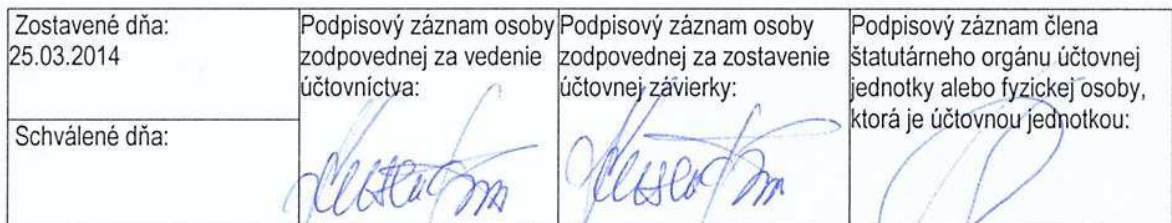 Zostavené dňa:
25.03.2014
Schválené dňa:
Podpisový záznam osoby
zodpovednej za vedenie
účtovníctva:
Podpisový záznam osoby
zodpovednej za zostavenie
účtovnej závierky:
Podpisový záznam člena
štatutárneho orgánu účtovnej
jednotky alebo fyzickej osoby,
ktorá je účtovnou jednotkou: